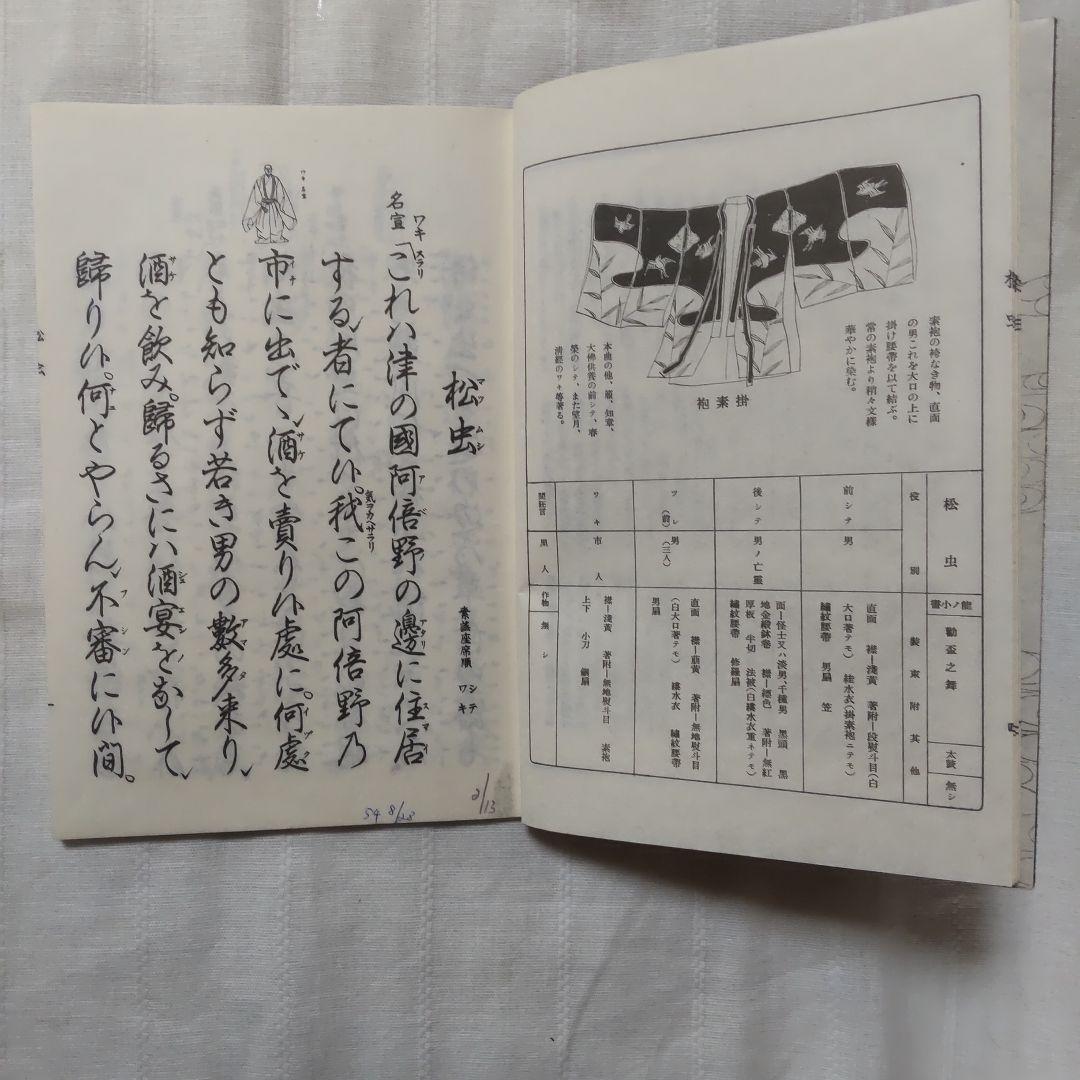 素袍の袴なき物、直面
の男これを大口の上に
掛け腰帶を以て結ぶ。
常の素袍より稍々文樣
華やかに染む。
掛素袍
本曲の他、蘆、知章、
大佛供養の前シテ、春
榮のシテ、また望月、
淸經のワキ等著る。
松虫
能ノ小書
勸盃之舞
太鼓
無シ
役別
裝束附其他
前シテ 男
直面 襟―淺黃 著附―段熨斗目(白
大口著テモ) 絓水衣(掛素袍ニテモ)
繡紋腰帶 男扇 笠
後シテ 男ノ亡靈
面―怪士又ハ淡男、千種男 黑頭 黑
地金緞鉢卷 襟―縹色 著附―無紅
厚板 半切 法被(白縷水衣重ネテモ)
繡紋腰帶 修羅扇
ツレ(前) 男(三人)
直面 襟―萠黃 著附―無地熨斗目
(白大口著テモ) 縷水衣 繡紋腰帶
男扇
ワキ 市人
襟―淺黃 著附―無地熨斗目 素袍
上下 小刀 鎭扇
間狂言 里人
作物 無シ
松虫
マツムシ
素謠座席順
シテ
ワキ
名宣
ワキ スラリ
「これハ津の國阿倍野の邊に住居
する者にて候。我この阿倍野乃
氣ヲカヘサラリ
市に出でゝ酒を賣り候處に。何處
とも知らず若き男の數多來り
酒を飮み。歸るさにハ酒宴をなして
歸り候。何とやらん不審に候間。
松虫
一
54 8/28
2/13